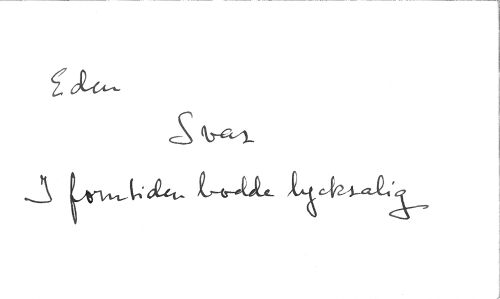 Eden
Svar
I forntiden bodde lycksalig